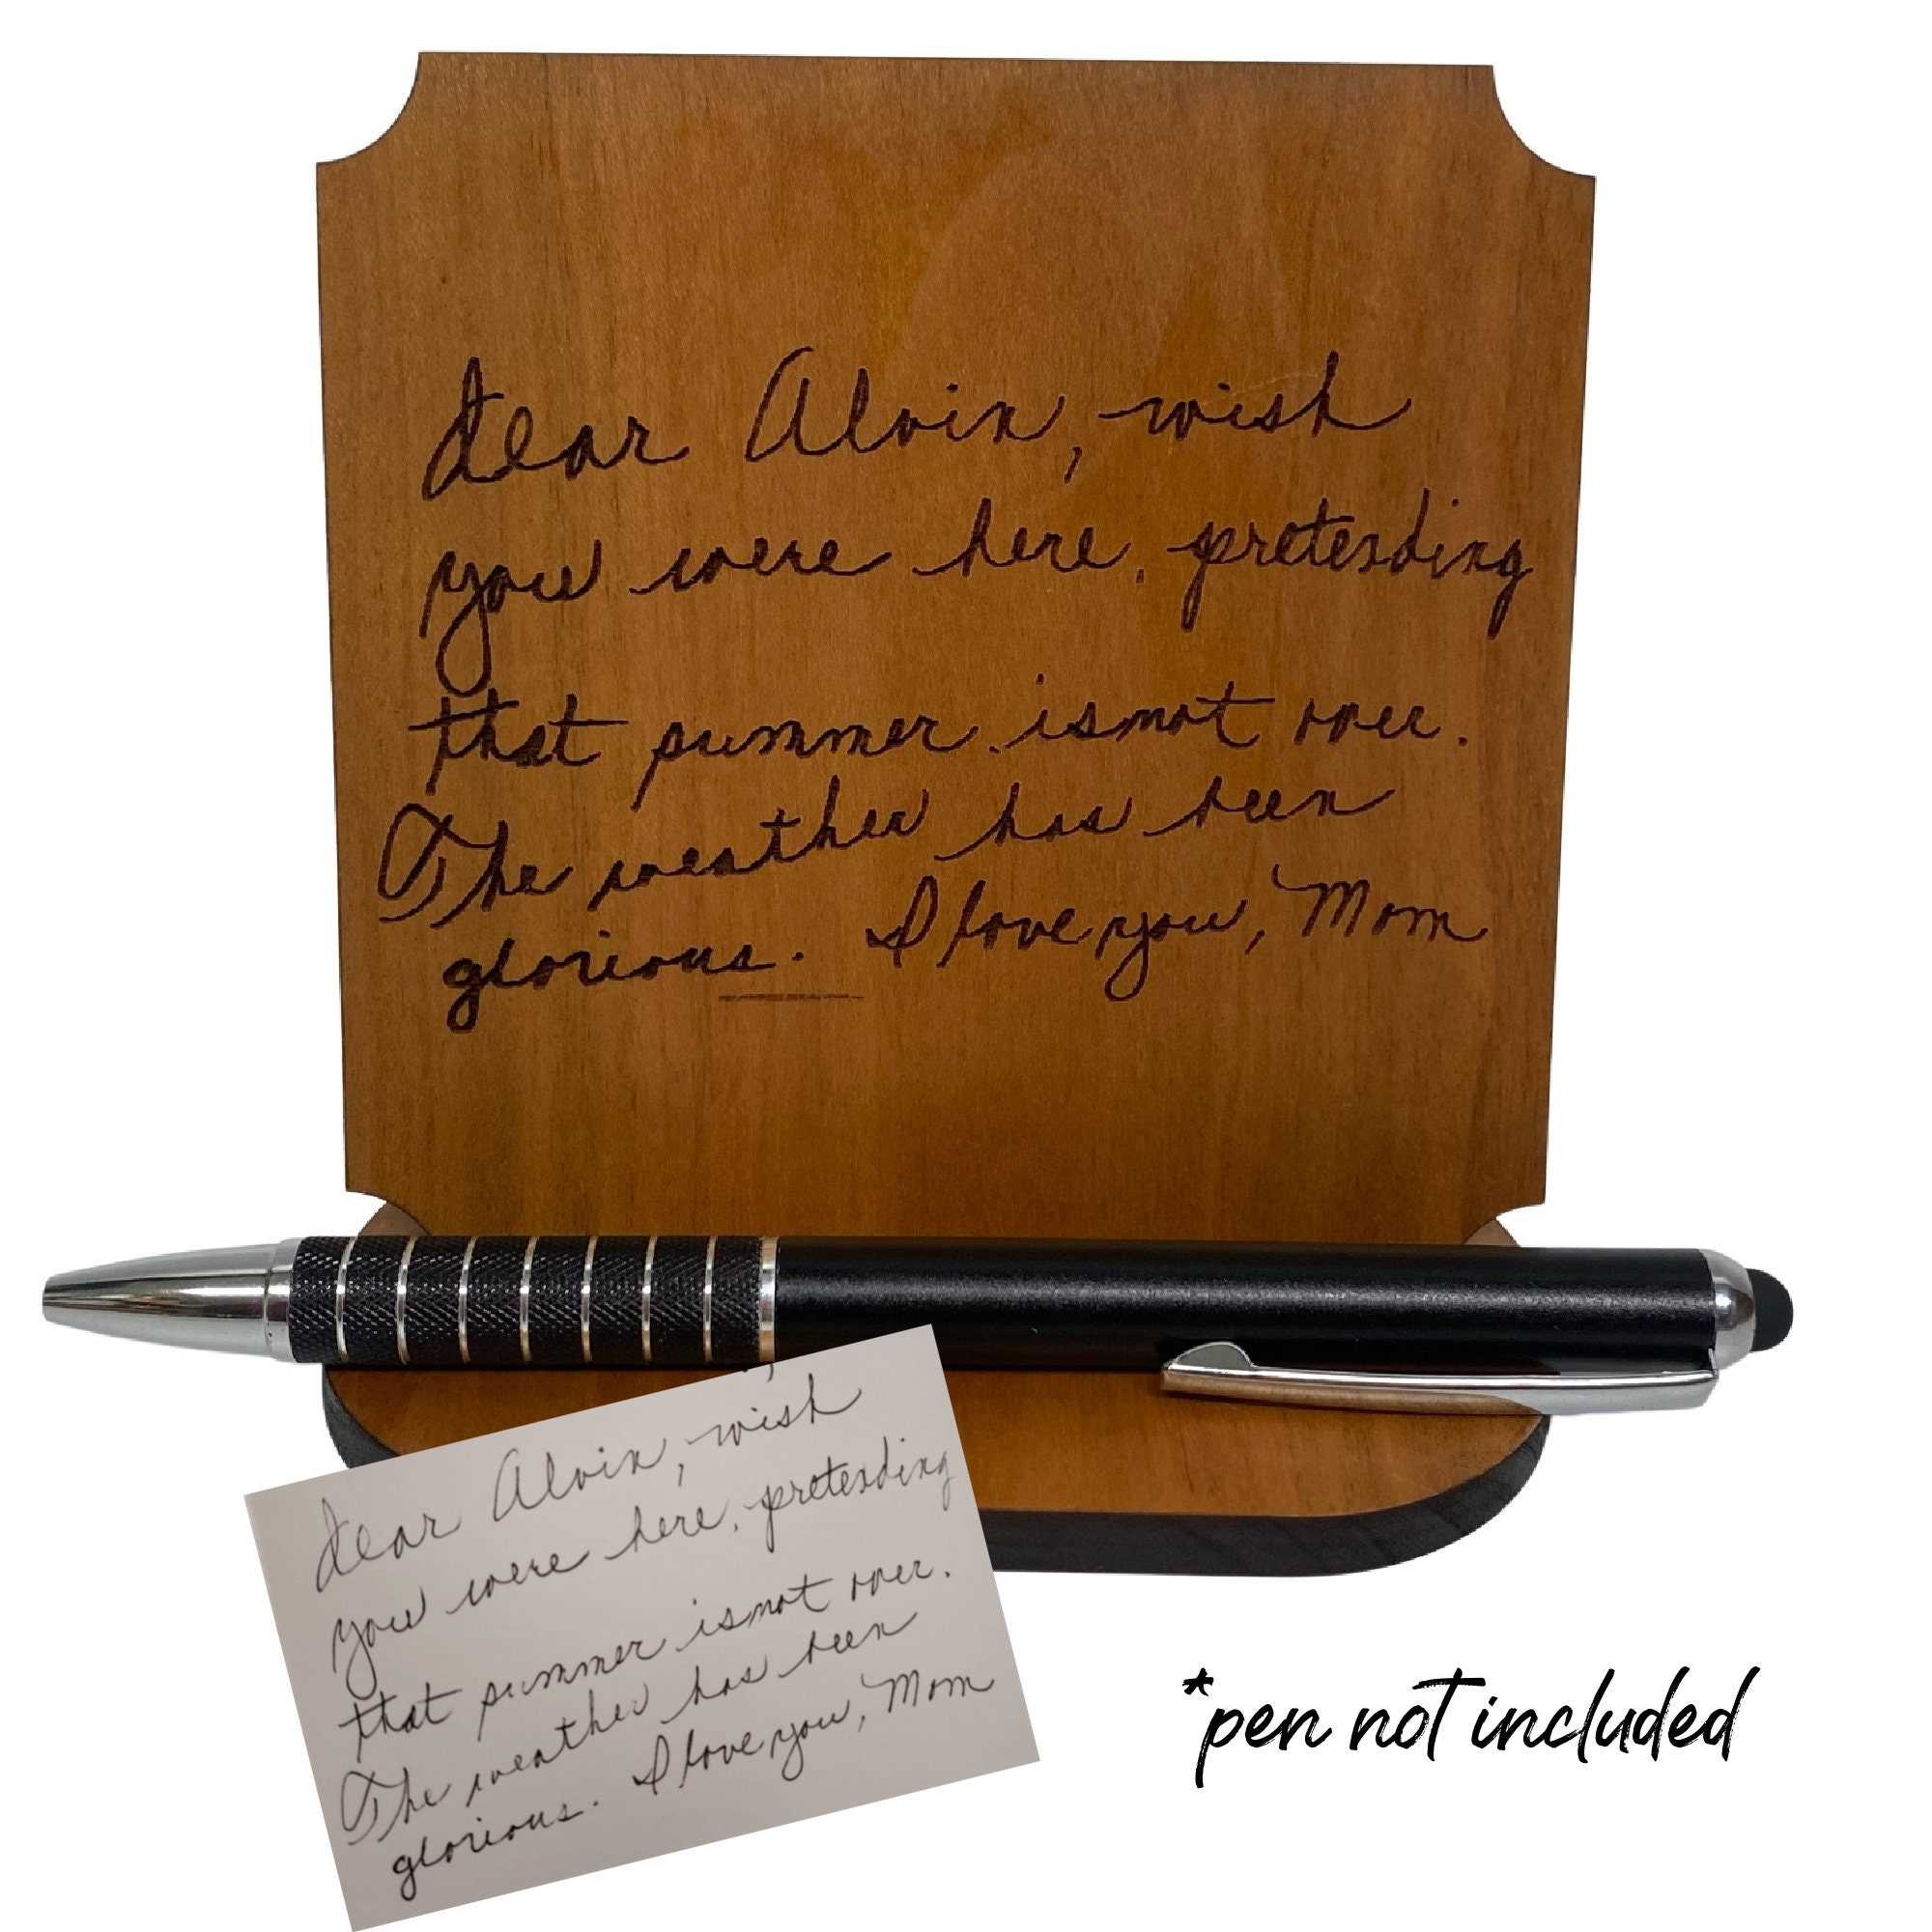 dear Alvin, wish
you were here, pretending
that summer is not over.
The weather has been
glorious. I love you, Mom
dear Alvin, wish
you were here, pretending
that summer is not over.
The weather has been
glorious. I love you, Mom
*pen not included